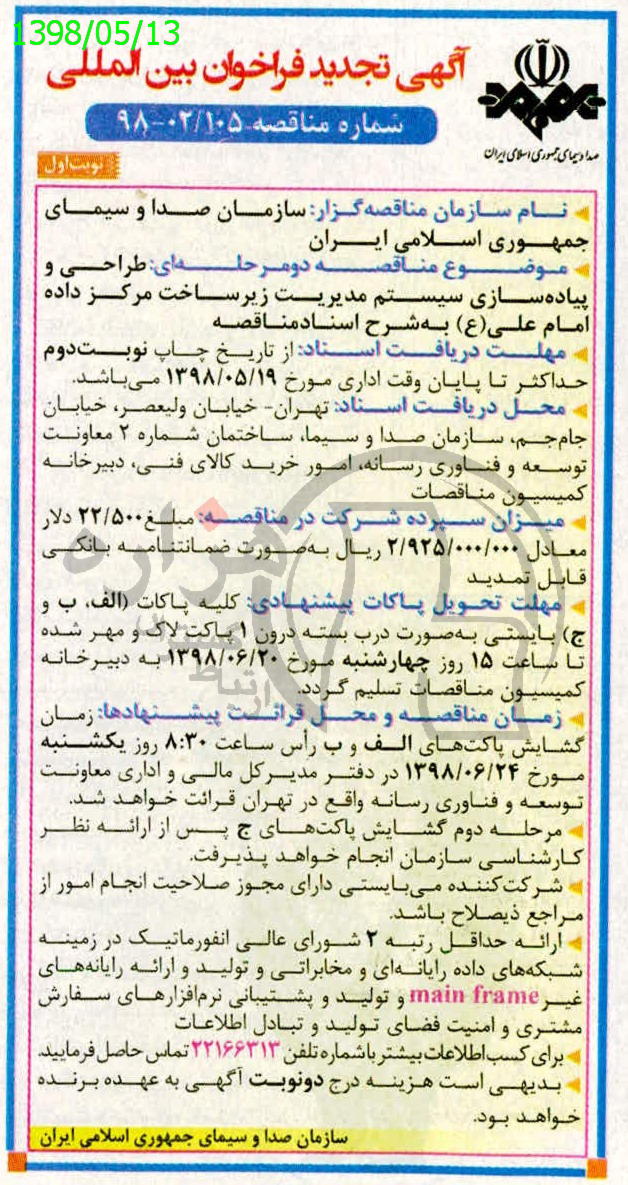 1398/05/13
آگهی تجدید فراخوان بین المللی
شماره مناقصه-۹۸-۰۲/۱۰۵
صدا و سیمای جمهوری اسلامی ایران
نوبت اول
نـام سـازمان مناقصه‌گـزار: سازمـان صـدا و سیمـای
جمهـوری اسـلامی ایـران
موضـوع مناقصـه دومرحلـه‌ای: طراحـی و
پیاده‌سـازی سیسـتم مدیریـت زیرساخت مرکـز داده
امام علـی(ع) به‌شـرح اسنـادمناقصه
مهلـت دریافـت اسـناد: از تاریـخ چـاپ نوبـت‌دوم
حداکثـر تـا پـایـان وقت اداری مـورخ ۱۳۹۸/۰۵/۱۹ می‌باشـد.
محـل دریافـت اسـناد: تهـران- خیابـان ولیعصـر، خیابان
جام‌جـم، سـازمان صدا و سیما، سـاختمان شـماره ۲ معاونـت
توسـعه و فنـاوری رسـانه، امـور خریـد کالای فنـی، دبیرخانـه
کمیسیون مناقصات
میـزان سـپرده شـرکت در مناقصـه: مبلـغ ۲۲/۵۰۰ دلار
معـادل ۲/۹۲۵/۰۰۰/۰۰۰ ریـال بـه‌صـورت ضمـانتنامـه بانکـی
قـابـل تمـدیـد
مهلت تحـویـل پـاکات پیشنهـادی: کلیـه پـاکات (الف، ب و
ج) بـایستی به‌صورت درب بستـه درون ۱ پـاکت لاک و مهر شده
تـا سـاعت ۱۵ روز چهارشنبه مـورخ ۱۳۹۸/۰۶/۲۰ بـه دبیـرخـانه
کمیسیـون منـاقصـات تسلیم گـردد.
زمـان مناقصـه و محـل قرائـت پیشـنهادها: زمـان
گشـایش پاکت‌هـای الـف و ب رأس سـاعت ۸:۳۰ روز یکشـنبه
مـورخ ۱۳۹۸/۰۶/۲۴ در دفتـر مدیـرکل مالـی و اداری معاونـت
توسـعه و فنـاوری رسـانه واقـع در تهـران قرائـت خواهـد شـد.
مرحلـه دوم گشـایش پاکت‌هـای ج پـس از ارائـه نظـر
کـارشناسـی سـازمان انجـام خـواهـد پـذیـرفت.
شـرکت‌کننـده می‌بـایستـی دارای مجوز صلاحیت انجـام امـور از
مراجع ذیصـلاح باشـد.
ارائـه حداقـل رتبـه ۲ شـورای عالـی انفورماتیـک در زمینـه
شـبکه‌های داده رایانـه‌ای و مخابراتـی و تولیـد و ارائـه رایانه‌هـای
غیـر main frame و تولیـد و پشـتیبانی نرم‌افزارهـای سـفارش
مشتـری و امنیت فضـای تـولیـد و تبـادل اطلاعـات
برای کسب اطلاعات بیشتر با شماره تلفن ۲۲۱۶۶۳۱۳ تماس حاصل فرمایید.
بـدیهـی اسـت هـزینـه درج دونوبـت آگهـی بـه عهـده بـرنـده
خـواهـد بـود.
سازمان صدا و سیمای جمهوری اسلامی ایران
هزاره
ارتباط